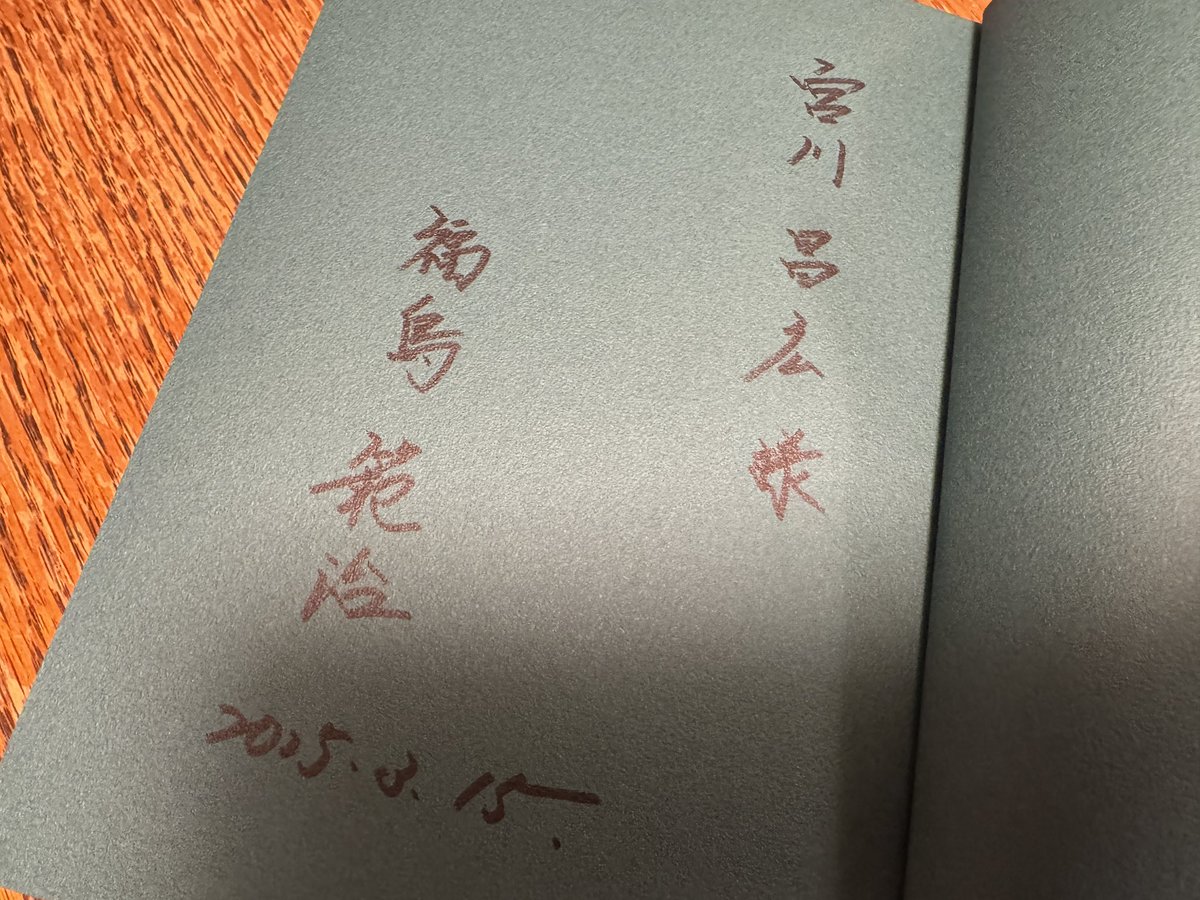 宮川 昌広 様
福島 範治
2025.8.15.